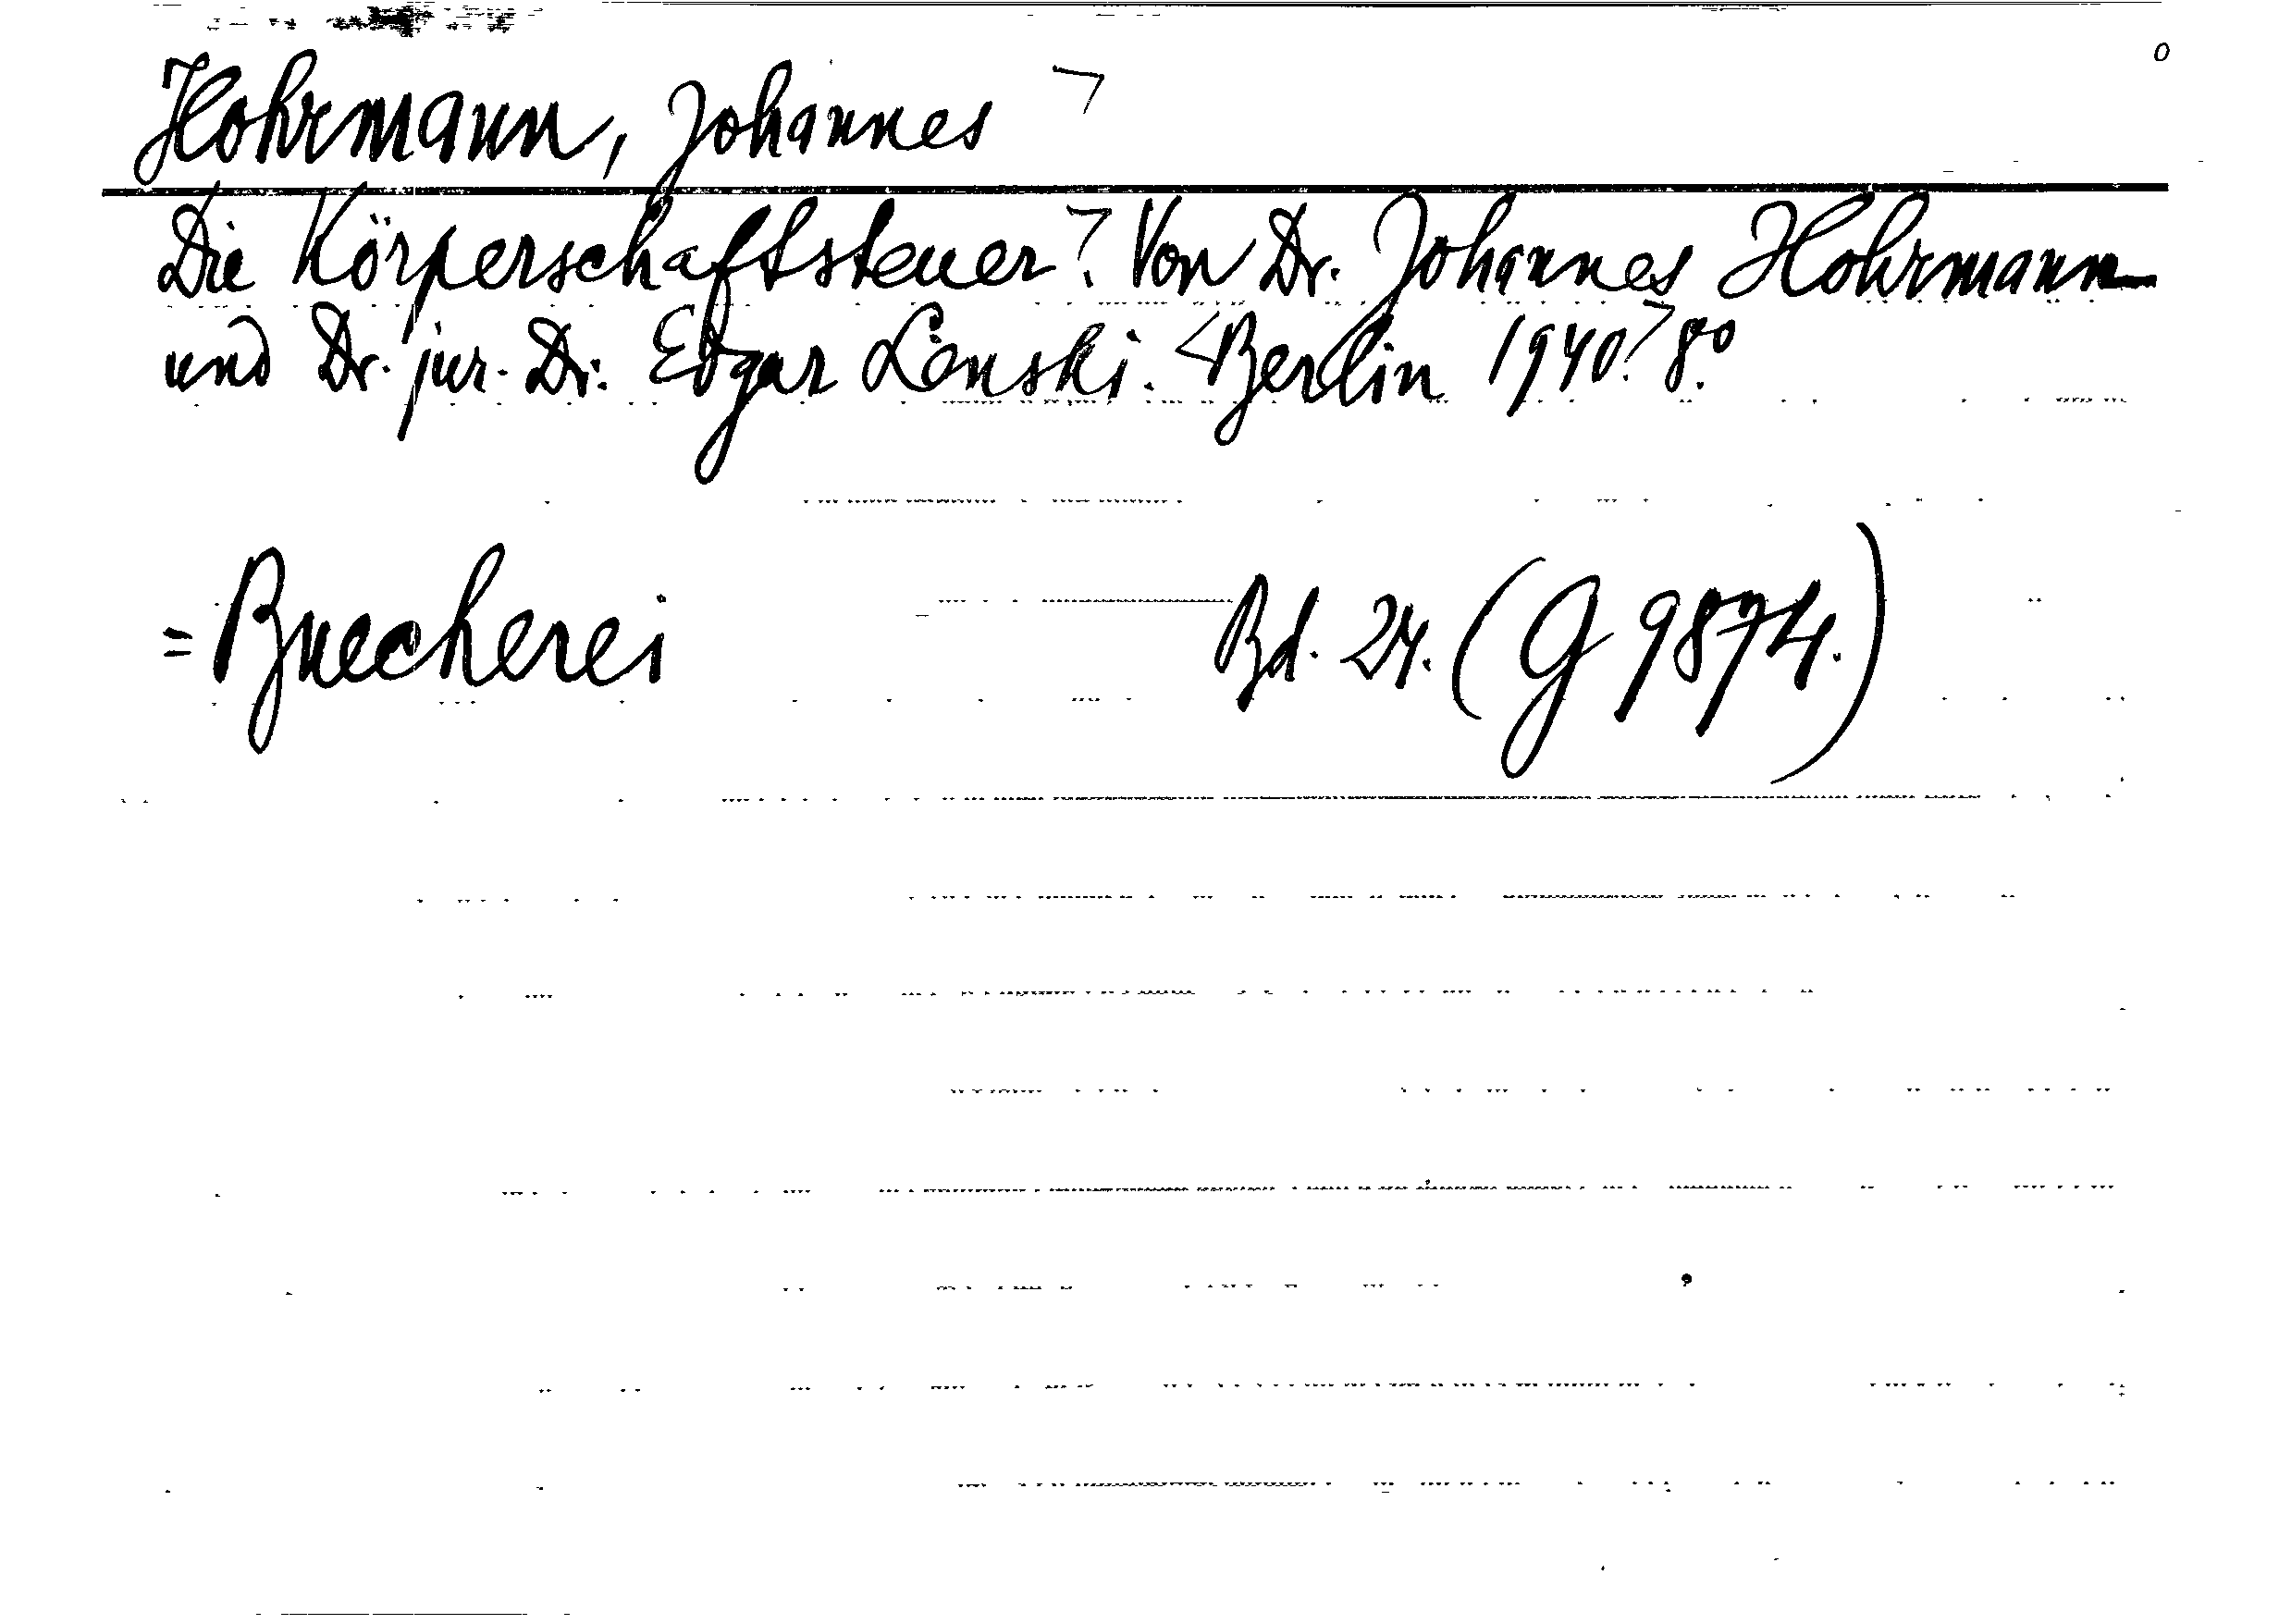 Hohrmann, Johannes ¬
Die Körperschaftsteuer ¬. Von Dr. Johannes Hohrmann
und Dr. jur. Dr. Edgar Lenski. <Berlin 1940.> 8.º
= Buecherei Bd. 24. (G 9874.)